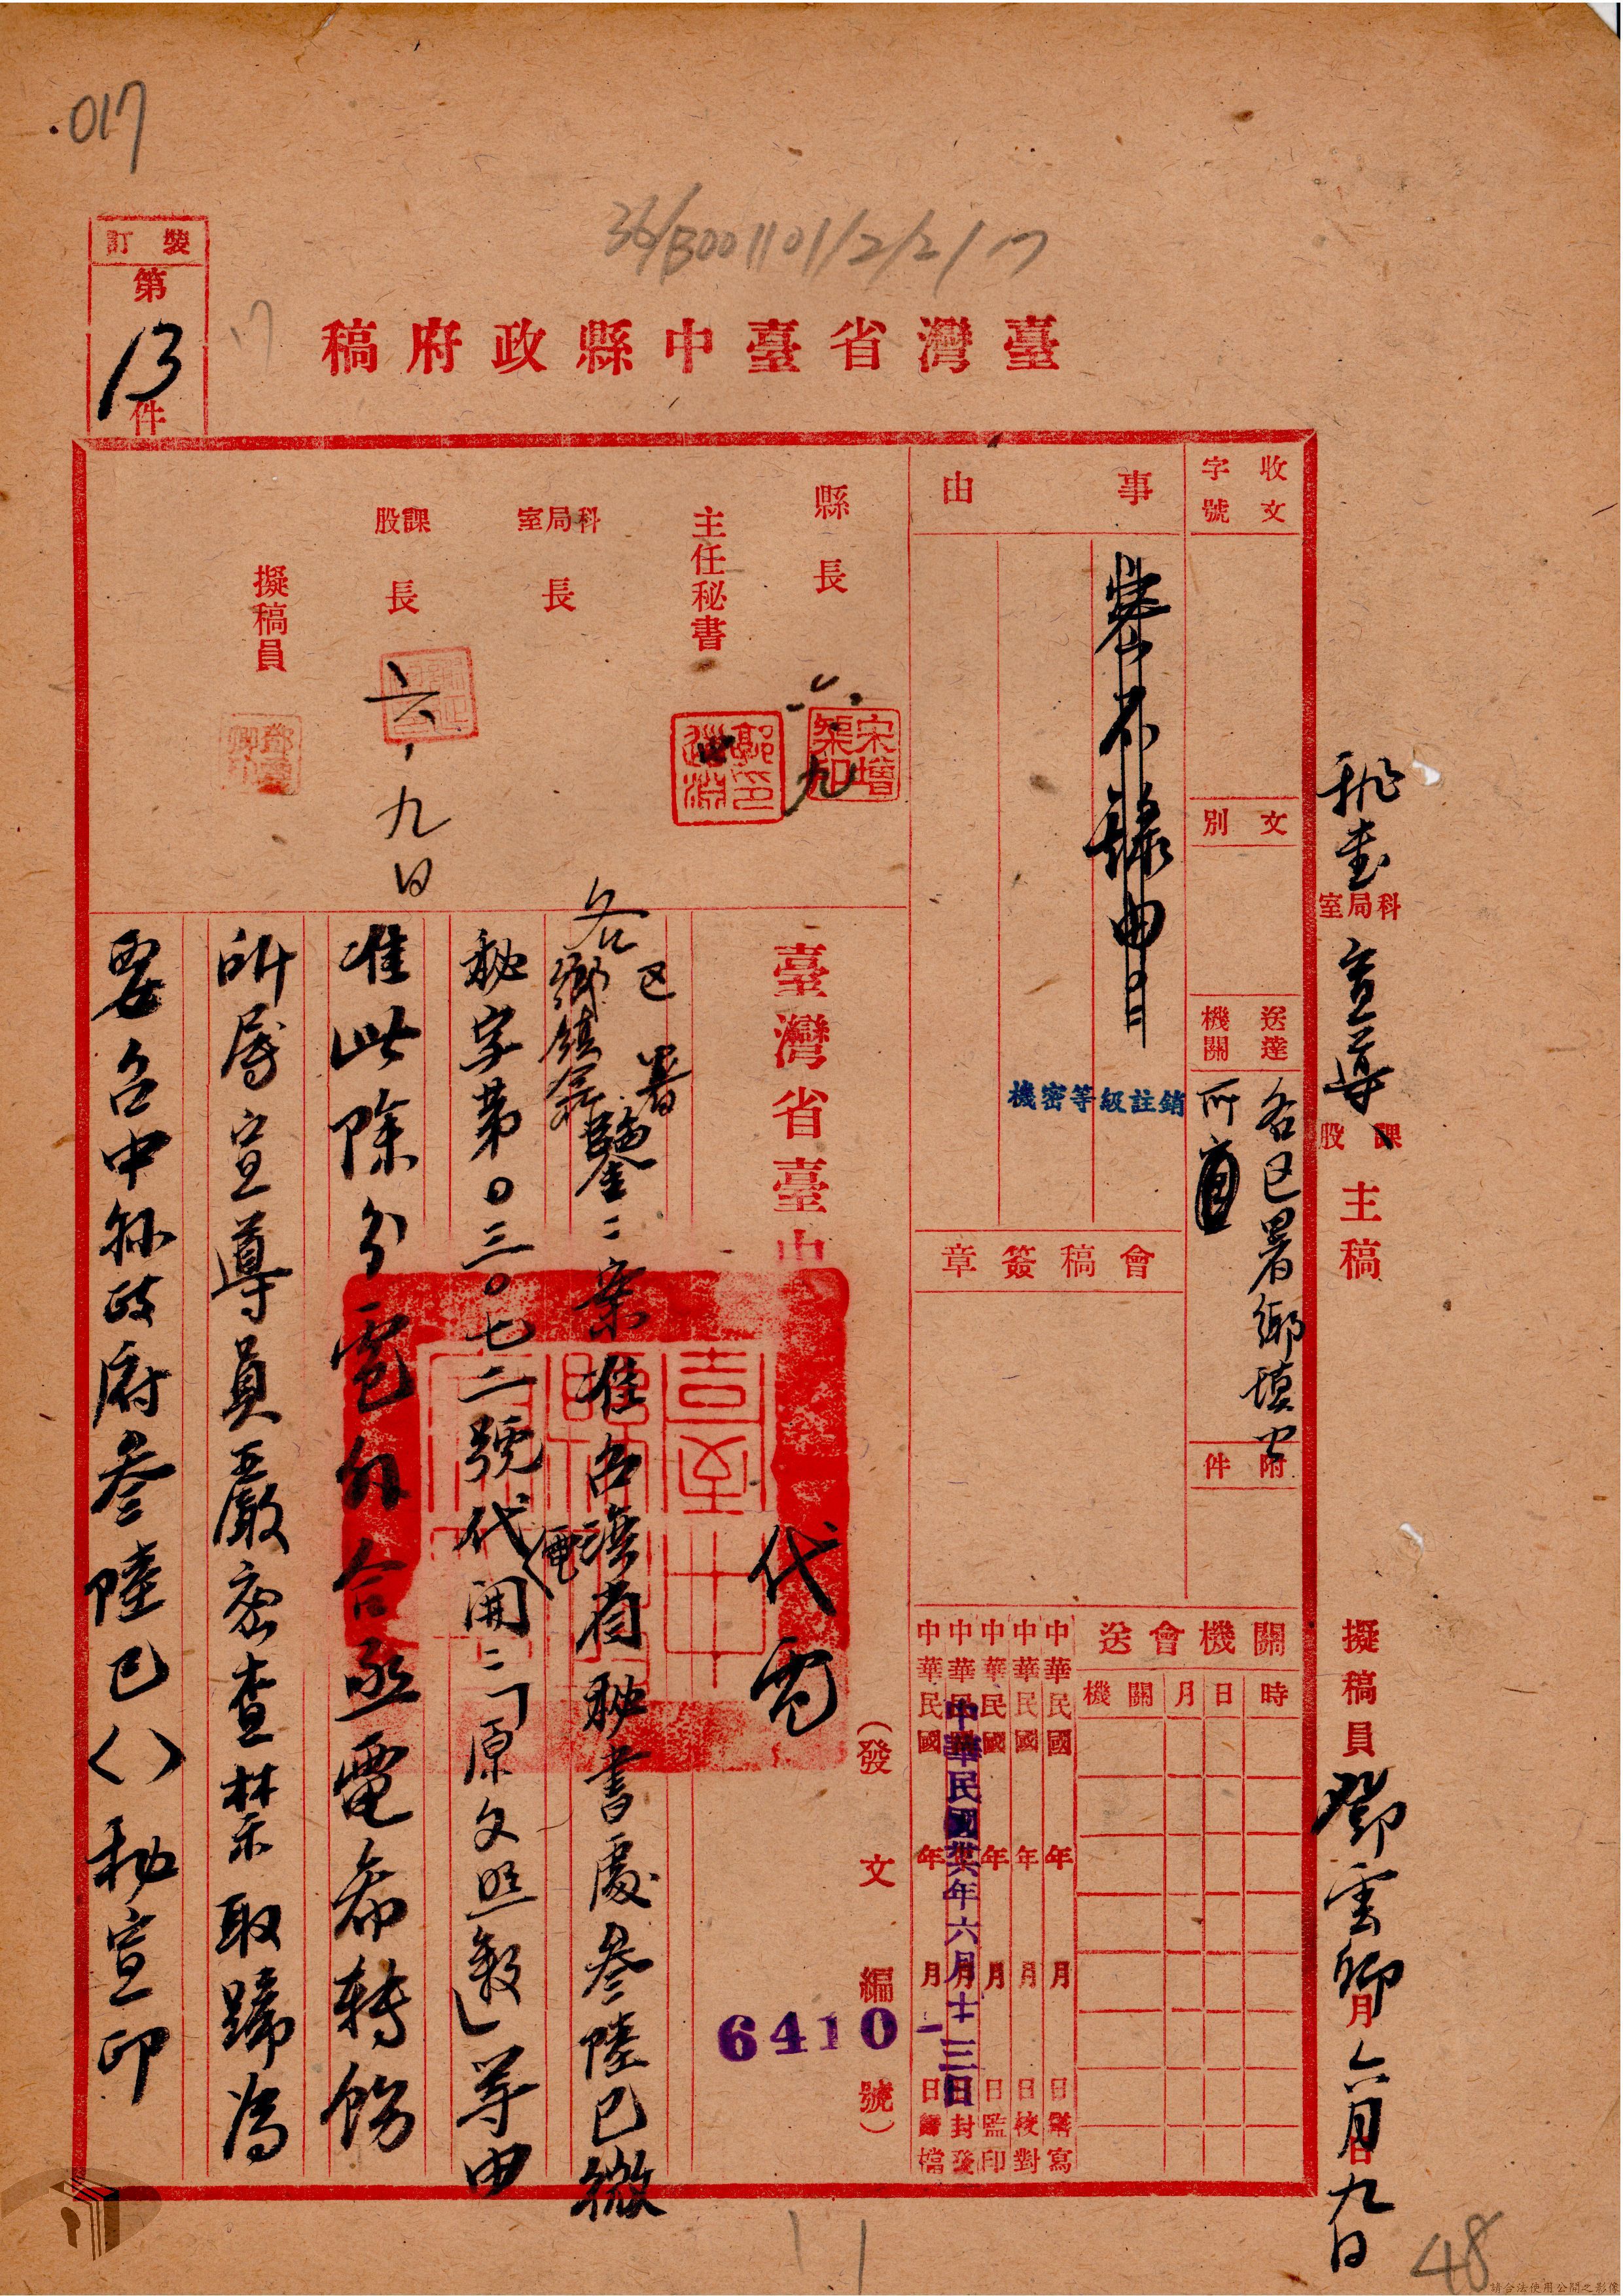 017
36/B001101/2/2/17
裝訂
第
13
件
17
臺灣省臺中縣政府稿
收文
字號
文別
送達
機關
各区署鄉鎮公
所
附件
事由
密不錄由
機密等級註銷
會稿簽章
關機會送
時
日
月
機關
中華民國 年 月 日繕寫
中華民國 年 月 日校對
中華民國 年 月 日監印
中華民國 年 月 日封發
中華民國 年 月 日歸檔
中華民國卅六年六月十三日
縣長
六.九
宋增榘印
主任秘書
科局室
長
課股
長
六、九日
擬稿員
秘書
科局室
宣導
課股
主稿
擬稿員
鄧雲卿
月
六月九日
臺灣省臺中
代電
(發文編號)
6410
各区署
鄉鎮公所
鑒:案准台灣省秘書處叁陸巳微
秘字第0三0七二號代電開:「原文照叙」等由
准此除分電外合亟電希轉飭
所屬宣導員嚴密查禁取蹄為
要台中縣政府叁陸巳( )秘宣印
48
請合法使用公開之影像